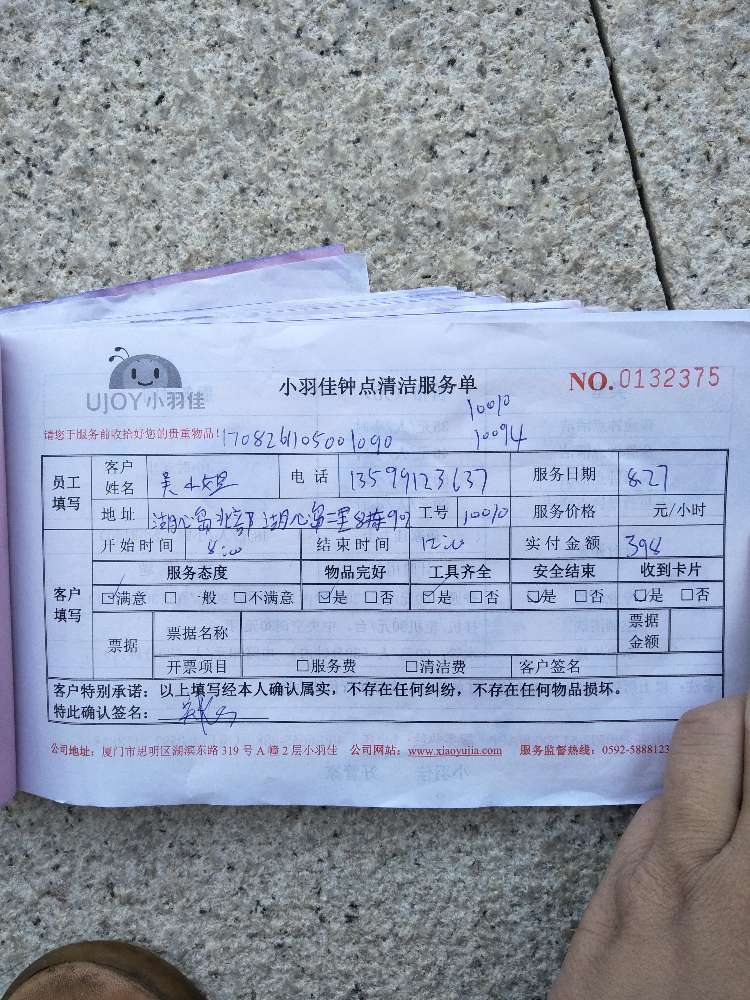 UJOY小羽佳
小羽佳钟点清洁服务单
NO.0132375
请您于服务前收拾好您的贵重物品!
170826105001090
10010
10094
员工填写 客户姓名 吴小姐 电话 13599123637 服务日期 8.27
地址 湖心岛北部 湖心岛二里8栋 工号 10010 服务价格 元/小时
客户填写 开始时间 8:00 结束时间 12:00 实付金额 398
服务态度 物品完好 工具齐全 安全结束 收到卡片
☑满意 □一般 □不满意 ☑是 □否 ☑是 □否 ☑是 □否 ☑是 □否
票据 票据名称 票据金额
开票项目 □服务费 □清洁费 客户签名
客户特别承诺：以上填写经本人确认属实，不存在任何纠纷，不存在任何物品损坏。
特此确认签名：
公司地址：厦门市思明区湖滨东路 319 号 A 幢 2 层小羽佳 公司网站：www.xiaoyujia.com 服务监督热线：0592-5888123